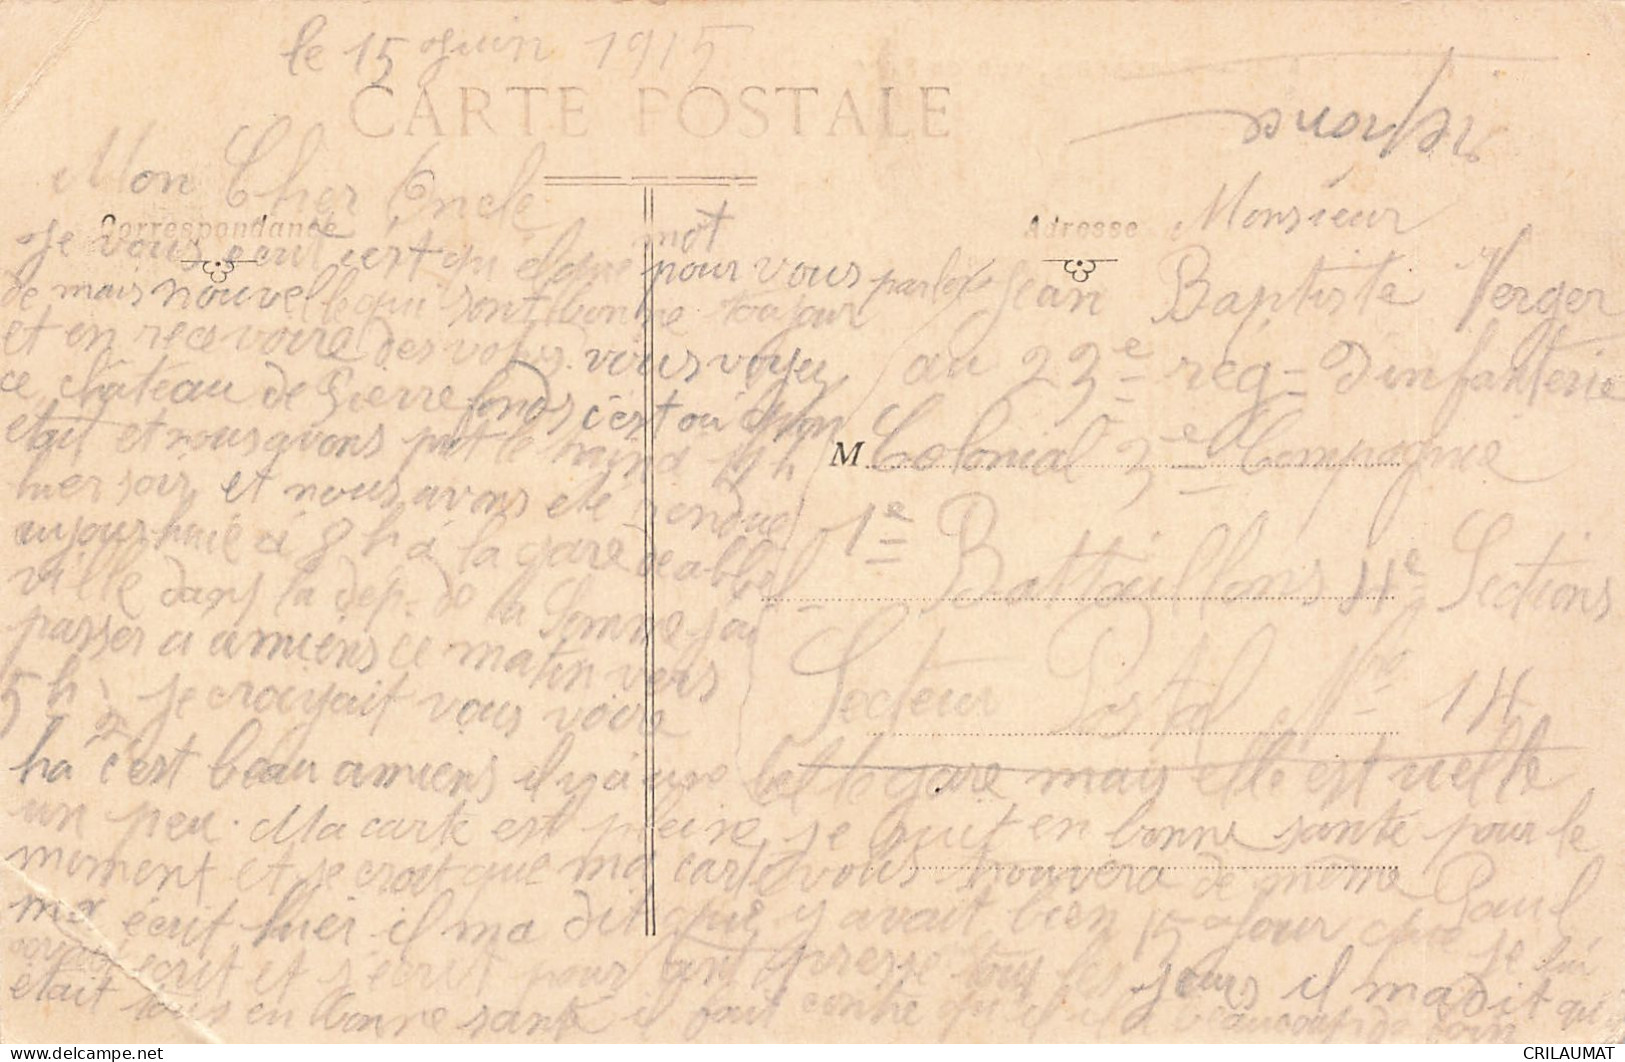 le 15 Juin 1915
CARTE POSTALE
réponse
Mon Cher Oncle
Correspondance
Je vous écrit c'est quelque mot
pour vous parlez
de mais nouvelle qui sont bonne toujour
et en recevoire des votres vous voyez
ce château de Pierrefonds c'est ou mon
était et nous avons prit le train 9 h
hier soir et nous avons été rendue
aujourhuié à 8 h à la gare de abbe
ville dans la dep. de la Somme j'ai
passer a amiens ce matin vers
5 h je croyait vous voire
ha c'est beau amiens il y a une belle gare mais elle est vielle
un peu. Ma carte est pleine je suit en bonne santé pour le
moment et je croit que ma carte vous trouvera de même Paul
ma écrit hier il ma dit que y avait bien 15 Jour que je lui
avait écrit et s'écrit pour tant presse tous les jours il ma dit qui
était tous en bonne santé il fait qu'il beaucoup de
Adresse
Monsieur
Jean Baptiste Verger
au 23e reg- d'infanterie
M Colonial 3e Compagnie
1e Battaillons 4e Sections
Secteur Postal Nro 14
CRILAUMAT